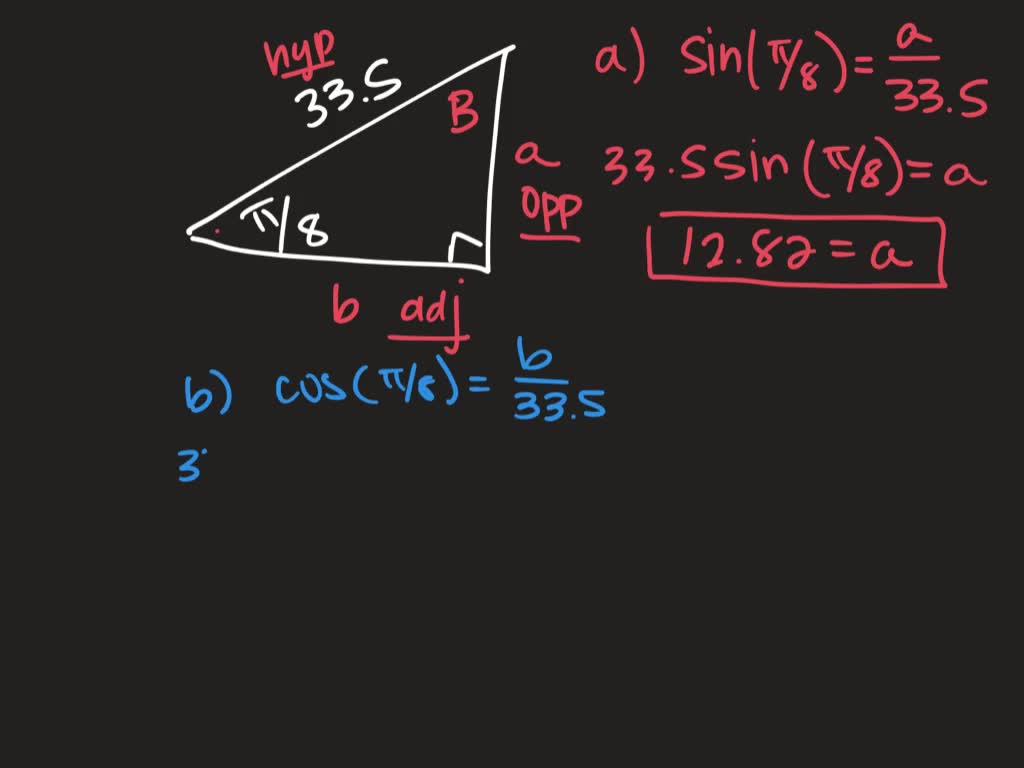 hyp
33.5
B
π/8
a
opp
b adj
a) sin(π/8) = a/33.5
33.5 sin (π/8) = a
12.82 = a
b) cos(π/8) = b/33.5
3